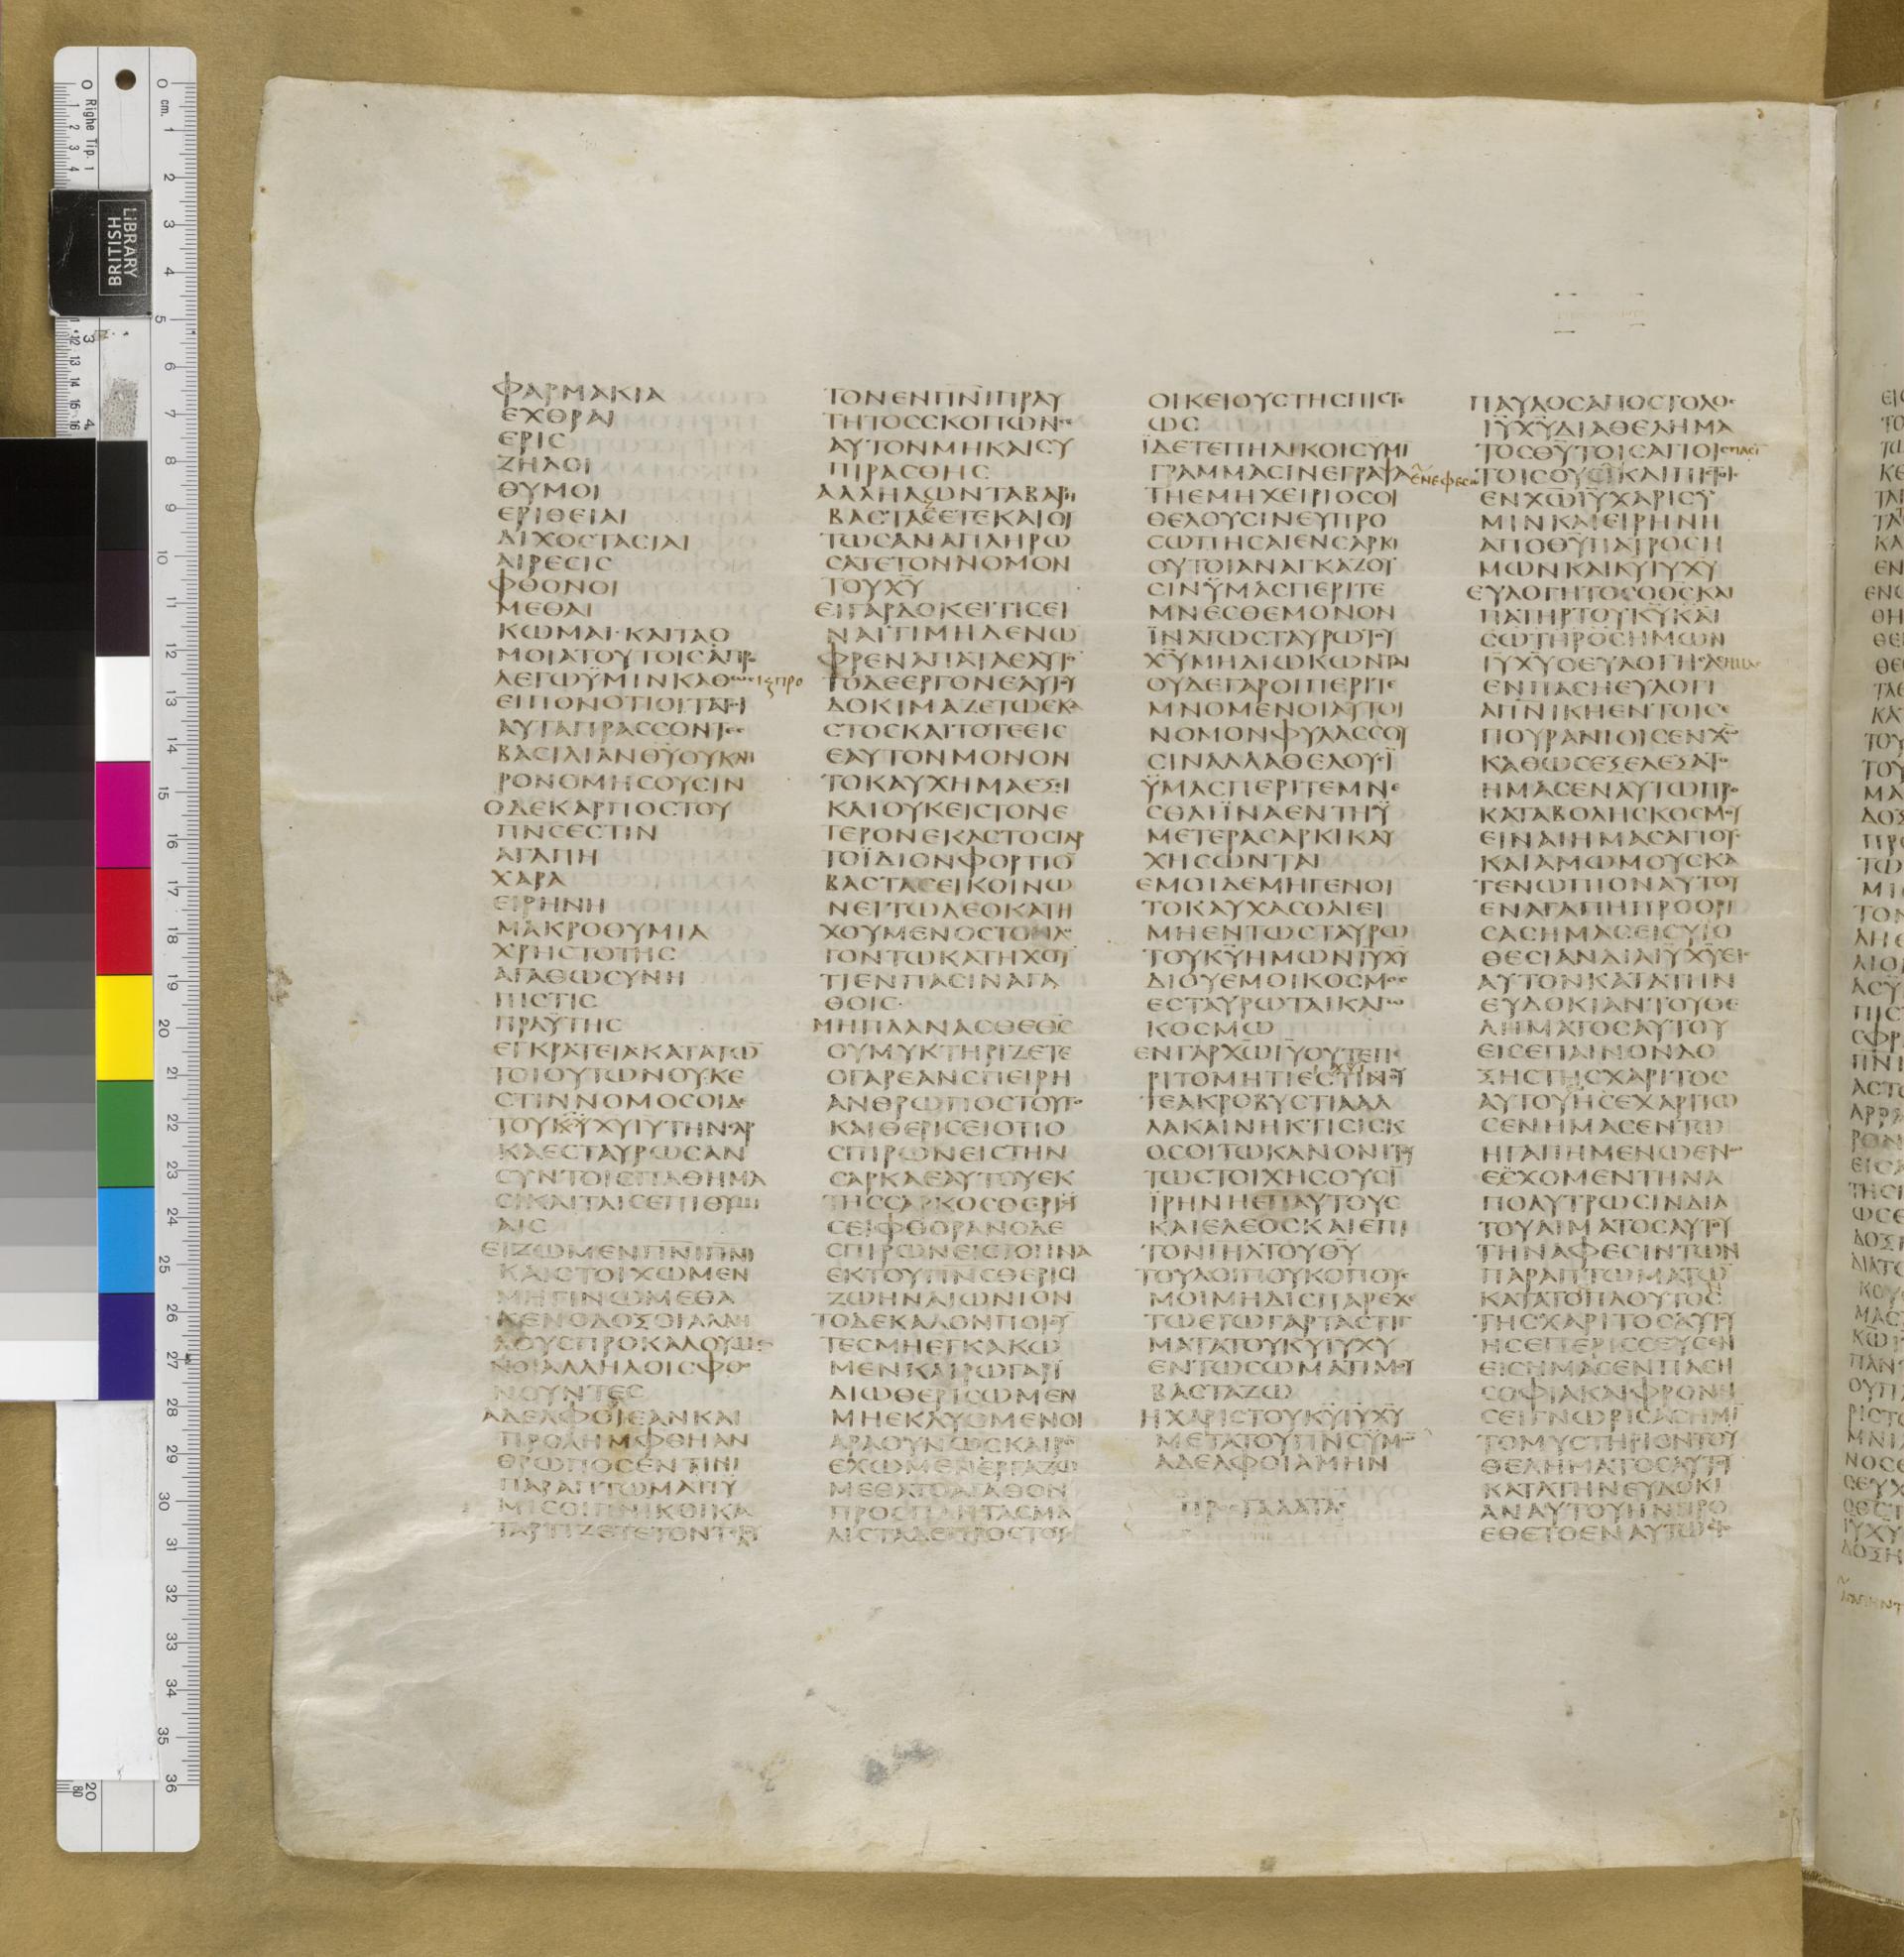 ΦΑΡΜΑΚΙΑ
ΕΧΘΡΑΙ
ΕΡΙϹ
ΖΗΛΟΙ
ΘΥΜΟΙ
ΕΡΙΘΕΙΑΙ
ΔΙΧΟϹΤΑϹΙΑΙ
ΑΙΡΕϹΙϹ
ΦΘΟΝΟΙ
ΜΕΘΑΙ
ΚΩΜΑΙ· ΚΑΙΤΑΟ
ΜΟΙΑΤΟΥΤΟΙϹΑΠΡ
ΛΕΓΩΫΜΙΝΚΑΘ
ΕΙΠΟΝΟΤΙΟΙΤΑΤΙ
ΑΥΤΑΠΡΑϹϹΟΝΤΕϹ
ΒΑϹΙΛΙΑΝΘΥΟΥΚΛΗ
ΡΟΝΟΜΗϹΟΥϹΙΝ
ΟΔΕΚΑΡΠΟϹΤΟΥ
ΠΝϹΕϹΤΙΝ
ΑΓΑΠΗ
ΧΑΡΑ
ΕΙΡΗΝΗ
ΜΑΚΡΟΘΥΜΙΑ
ΧΡΗϹΤΟΤΗϹ
ΑΓΑΘΩϹΥΝΗ
ΠΙϹΤΙϹ
ΠΡΑΫΤΗϹ
ΕΓΚΡΑΤΕΙΑΚΑΤΑΤΩ
ΤΟΙΟΥΤΩΝΟΥΚΕ
ϹΤΙΝΝΟΜΟϹΟΙΔΕ
ΤΟΥΚΥΧΥΙΥΤΗΝϹΑΡ
ΚΑΕϹΤΑΥΡΩϹΑΝ
ϹΥΝΤΟΙϹΠΑΘΗΜΑ
ϹΙΚΑΙΤΑΙϹΕΠΙΘΥΜΙ
ΑΙϹ
ΕΙΖΩΜΕΝΠΝΙΠΝΙ
ΚΑΙϹΤΟΙΧΩΜΕΝ
ΜΗΓΙΝΩΜΕΘΑ
ΚΕΝΟΔΟΞΟΙΑΛΛΗ
ΛΟΥϹΠΡΟΚΑΛΟΥΜΕ
ΝΟΙΑΛΛΗΛΟΙϹΦΘΟ
ΝΟΥΝΤΕϹ
ΑΔΕΛΦΟΙΕΑΝΚΑΙ
ΠΡΟΛΗΜΦΘΗΑΝ
ΘΡΩΠΟϹΕΝΤΙΝΙ
ΠΑΡΑΠΤΩΜΑΤΙΥ
ΜΙϹΟΙΠΝΙΚΟΙΚΑ
ΤΑΡΤΙΖΕΤΕΤΟΝΤΟΙΟΥ
ΤΟΝΕΝΠΝΙΠΡΑΥ
ΤΗΤΟϹϹΚΟΠΩΝ
ΑΥΤΟΝΜΗΚΑΙϹΥ
ΠΙΡΑϹΘΗϹ
ΑΛΛΗΛΩΝΤΑΒΑΡΗ
ΒΑϹΤΑϹΕΤΕΚΑΙΟΥ
ΤΩϹΑΝΑΠΛΗΡΩ
ϹΑΤΕΤΟΝΝΟΜΟΝ
ΤΟΥΧΥ
ΕΙΓΑΡΔΟΚΕΙΤΙϹΕΙ
ΝΑΙΤΙΜΗΔΕΝΩ
ΦΡΕΝΑΠΑΤΑΕΑΥΤΟ
ΤΟΔΕΕΡΓΟΝΕΑΥΤΟΥ
ΔΟΚΙΜΑΖΕΤΩΕΚΑ
ϹΤΟϹΚΑΙΤΟΤΕΕΙϹ
ΕΑΥΤΟΝΜΟΝΟΝ
ΤΟΚΑΥΧΗΜΑΕΞΙ
ΚΑΙΟΥΚΕΙϹΤΟΝΕ
ΤΕΡΟΝΕΚΑϹΤΟϹΓΑΡ
ΤΟΪΔΙΟΝΦΟΡΤΙΟ
ΒΑϹΤΑϹΕΙΚΟΙΝΩ
ΝΕΙΤΩΔΕΟΚΑΤΗ
ΧΟΥΜΕΝΟϹΤΟΝΛΟ
ΓΟΝΤΩΚΑΤΗΧΟΥ
ΤΙΕΝΠΑϹΙΝΑΓΑ
ΘΟΙϹ·
ΜΗΠΛΑΝΑϹΘΕΘϹ
ΟΥΜΥΚΤΗΡΙΖΕΤΕ
ΟΓΑΡΕΑΝϹΠΕΙΡΗ
ΑΝΘΡΩΠΟϹΤΟΥΤΟ
ΚΑΙΘΕΡΙϹΕΙΟΤΙΟ
ϹΠΙΡΩΝΕΙϹΤΗΝ
ϹΑΡΚΑΕΑΥΤΟΥΕΚ
ΤΗϹϹΑΡΚΟϹΘΕΡΙ
ϹΕΙΦΘΟΡΑΝΟΔΕ
ϹΠΙΡΩΝΕΙϹΤΟΠΝΑ
ΕΚΤΟΥΠΝϹΘΕΡΙϹΙ
ΖΩΗΝΑΙΩΝΙΟΝ
ΤΟΔΕΚΑΛΟΝΠΟΙΟΥ
ΤΕϹΜΗΕΓΚΑΚΩ
ΜΕΝΚΑΙΡΩΓΑΡΪ
ΔΙΩΘΕΡΙϹΩΜΕΝ
ΜΗΕΚΛΥΟΜΕΝΟΙ
ΑΡΑΟΥΝΩϹΚΑΙΡΟ
ΕΧΩΜΕΝΕΡΓΑΖΩ
ΜΕΘΑΤΟΑΓΑΘΟΝ
ΠΡΟϹΠΑΝΤΑϹΜΑ
ΛΙϹΤΑΔΕΠΡΟϹΤΟΥϹ
ΟΙΚΕΙΟΥϹΤΗϹΠΙϹΤΕ
ΩϹ
ΪΔΕΤΕΠΗΛΙΚΟΙϹΥΜΙ
ΓΡΑΜΜΑϹΙΝΕΓΡΑΨΑ
ΤΗΕΜΗΧΕΙΡΙΟϹΟΙ
ΘΕΛΟΥϹΙΝΕΥΠΡΟ
ϹΩΠΗϹΑΙΕΝϹΑΡΚΙ
ΟΥΤΟΙΑΝΑΓΚΑΖΟΥ
ϹΙΝΫΜΑϹΠΕΡΙΤΕ
ΜΝΕϹΘΕΜΟΝΟΝ
ΪΝΑΤΩϹΤΑΥΡΩΤΟΥ
ΧΥΜΗΔΙΩΚΩΝΤΑΙ
ΟΥΔΕΓΑΡΟΙΠΕΡΙΤΕ
ΜΝΟΜΕΝΟΙΑΥΤΟΙ
ΝΟΜΟΝΦΥΛΑϹϹΟΥ
ϹΙΝΑΛΛΑΘΕΛΟΥϹΙ
ΫΜΑϹΠΕΡΙΤΕΜΝΕ
ϹΘΑΙΪΝΑΕΝΤΗΫ
ΜΕΤΕΡΑϹΑΡΚΙΚΑΥ
ΧΗϹΩΝΤΑΙ
ΕΜΟΙΔΕΜΗΓΕΝΟΙ
ΤΟΚΑΥΧΑϹΘΑΙΕΙ
ΜΗΕΝΤΩϹΤΑΥΡΩ
ΤΟΥΚΥΗΜΩΝΙΥΧΥ
ΔΙΟΥΕΜΟΙΚΟϹΜΟϹ
ΕϹΤΑΥΡΩΤΑΙΚΑΓΩ
ΚΟϹΜΩ
ΕΝΓΑΡΧΩΙΥΟΥΤΕΠΕ
ΡΙΤΟΜΗΤΙΕϹΤΙΝΟΥ
ΤΕΑΚΡΟΒΥϹΤΙΑΑΛ
ΛΑΚΑΙΝΗΚΤΙϹΙϹΚ
ΟϹΟΙΤΩΚΑΝΟΝΙΤΟΥ
ΤΩϹΤΟΙΧΗϹΟΥϹΙ
ΪΡΗΝΗΕΠΑΥΤΟΥϹ
ΚΑΙΕΛΕΟϹΚΑΙΕΠΙ
ΤΟΝΙΗΛΤΟΥΘΥ
ΤΟΥΛΟΙΠΟΥΚΟΠΟΥϹ
ΜΟΙΜΗΔΙϹΠΑΡΕΧΕ
ΤΩΕΓΩΓΑΡΤΑϹΤΙΓ
ΜΑΤΑΤΟΥΚΥΙΥΧΥ
ΕΝΤΩϹΩΜΑΤΙΜΟΥ
ΒΑϹΤΑΖΩ
ΗΧΑΡΙϹΤΟΥΚΥΙΥΧΥ
ΜΕΤΑΤΟΥΠΝϹΥΜΩ
ΑΔΕΛΦΟΙΑΜΗΝ
ΠΡΟϹΓΑΛΑΤΑϹ
ΠΑΥΛΟϹΑΠΟϹΤΟΛΟϹ
ΙΥΧΥΔΙΑΘΕΛΗΜΑ
ΤΟϹΘΥΤΟΙϹΑΓΙΟΙϹ
ΕΝΕΦΕϹΩ
ΤΟΙϹΟΥϹΙΚΑΙΠΙϹΤΟΙϹ
ΕΝΧΩΙΥΧΑΡΙϹΥ
ΜΙΝΚΑΙΕΙΡΗΝΗ
ΑΠΟΘΥΠΑΤΡΟϹΗ
ΜΩΝΚΑΙΚΥΙΥΧΥ
ΕΥΛΟΓΗΤΟϹΟΘϹΚΑΙ
ΠΑΤΗΡΤΟΥΚΥΚΑΙ
ϹΩΤΗΡΟϹΗΜΩΝ
ΙΥΧΥΟΕΥΛΟΓΗϹΑϹ
ΕΝΠΑϹΗΕΥΛΟΓΙ
ΑΠΝΙΚΗΕΝΤΟΙϹΕ
ΠΟΥΡΑΝΙΟΙϹΕΝΧΩ
ΚΑΘΩϹΕΞΕΛΕΞΑΤΟ
ΗΜΑϹΕΝΑΥΤΩΠΡΟ
ΚΑΤΑΒΟΛΗϹΚΟϹΜΟΥ
ΕΙΝΑΙΗΜΑϹΑΓΙΟΥϹ
ΚΑΙΑΜΩΜΟΥϹΚΑ
ΤΕΝΩΠΙΟΝΑΥΤΟΥ
ΕΝΑΓΑΠΗΠΡΟΟΡΙ
ϹΑϹΗΜΑϹΕΙϹΥΙΟ
ΘΕϹΙΑΝΔΙΑΙΥΧΥΕΙϹ
ΑΥΤΟΝΚΑΤΑΤΗΝ
ΕΥΔΟΚΙΑΝΤΟΥΘΕ
ΛΗΜΑΤΟϹΑΥΤΟΥ
ΕΙϹΕΠΑΙΝΟΝΔΟ
ΞΗϹΤΗϹΧΑΡΙΤΟϹ
ΑΥΤΟΥΗϹΕΧΑΡΙΤΩ
ϹΕΝΗΜΑϹΕΝΤΩ
ΗΓΑΠΗΜΕΝΩΕΝΩ
ΕϹΧΟΜΕΝΤΗΝΑ
ΠΟΛΥΤΡΩϹΙΝΔΙΑ
ΤΟΥΑΙΜΑΤΟϹΑΥΤΟΥ
ΤΗΝΑΦΕϹΙΝΤΩΝ
ΠΑΡΑΠΤΩΜΑΤΩ
ΚΑΤΑΤΟΠΛΟΥΤΟϹ
ΤΗϹΧΑΡΙΤΟϹΑΥΤΟΥ
ΗϹΕΠΕΡΙϹϹΕΥϹΕΝ
ΕΙϹΗΜΑϹΕΝΠΑϹΗ
ϹΟΦΙΑΚΑΙΦΡΟΝΗ
ϹΕΙΓΝΩΡΙϹΑϹΗΜΙ
ΤΟΜΥϹΤΗΡΙΟΝΤΟΥ
ΘΕΛΗΜΑΤΟϹΑΥΤΟΥ
ΚΑΤΑΤΗΝΕΥΔΟΚΙ
ΑΝΑΥΤΟΥΗΝΠΡΟ
ΕΘΕΤΟΕΝΑΥΤΩ
BRITISH
LIBRARY